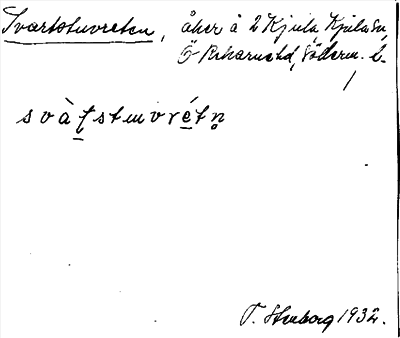 Svartstuvreten, åker å 2 Kjula, Kjula sn,
Ö Rekarnehd, Söderm. l.
svàt̠stuvrét̠n̥
T. Stenborg 1932.